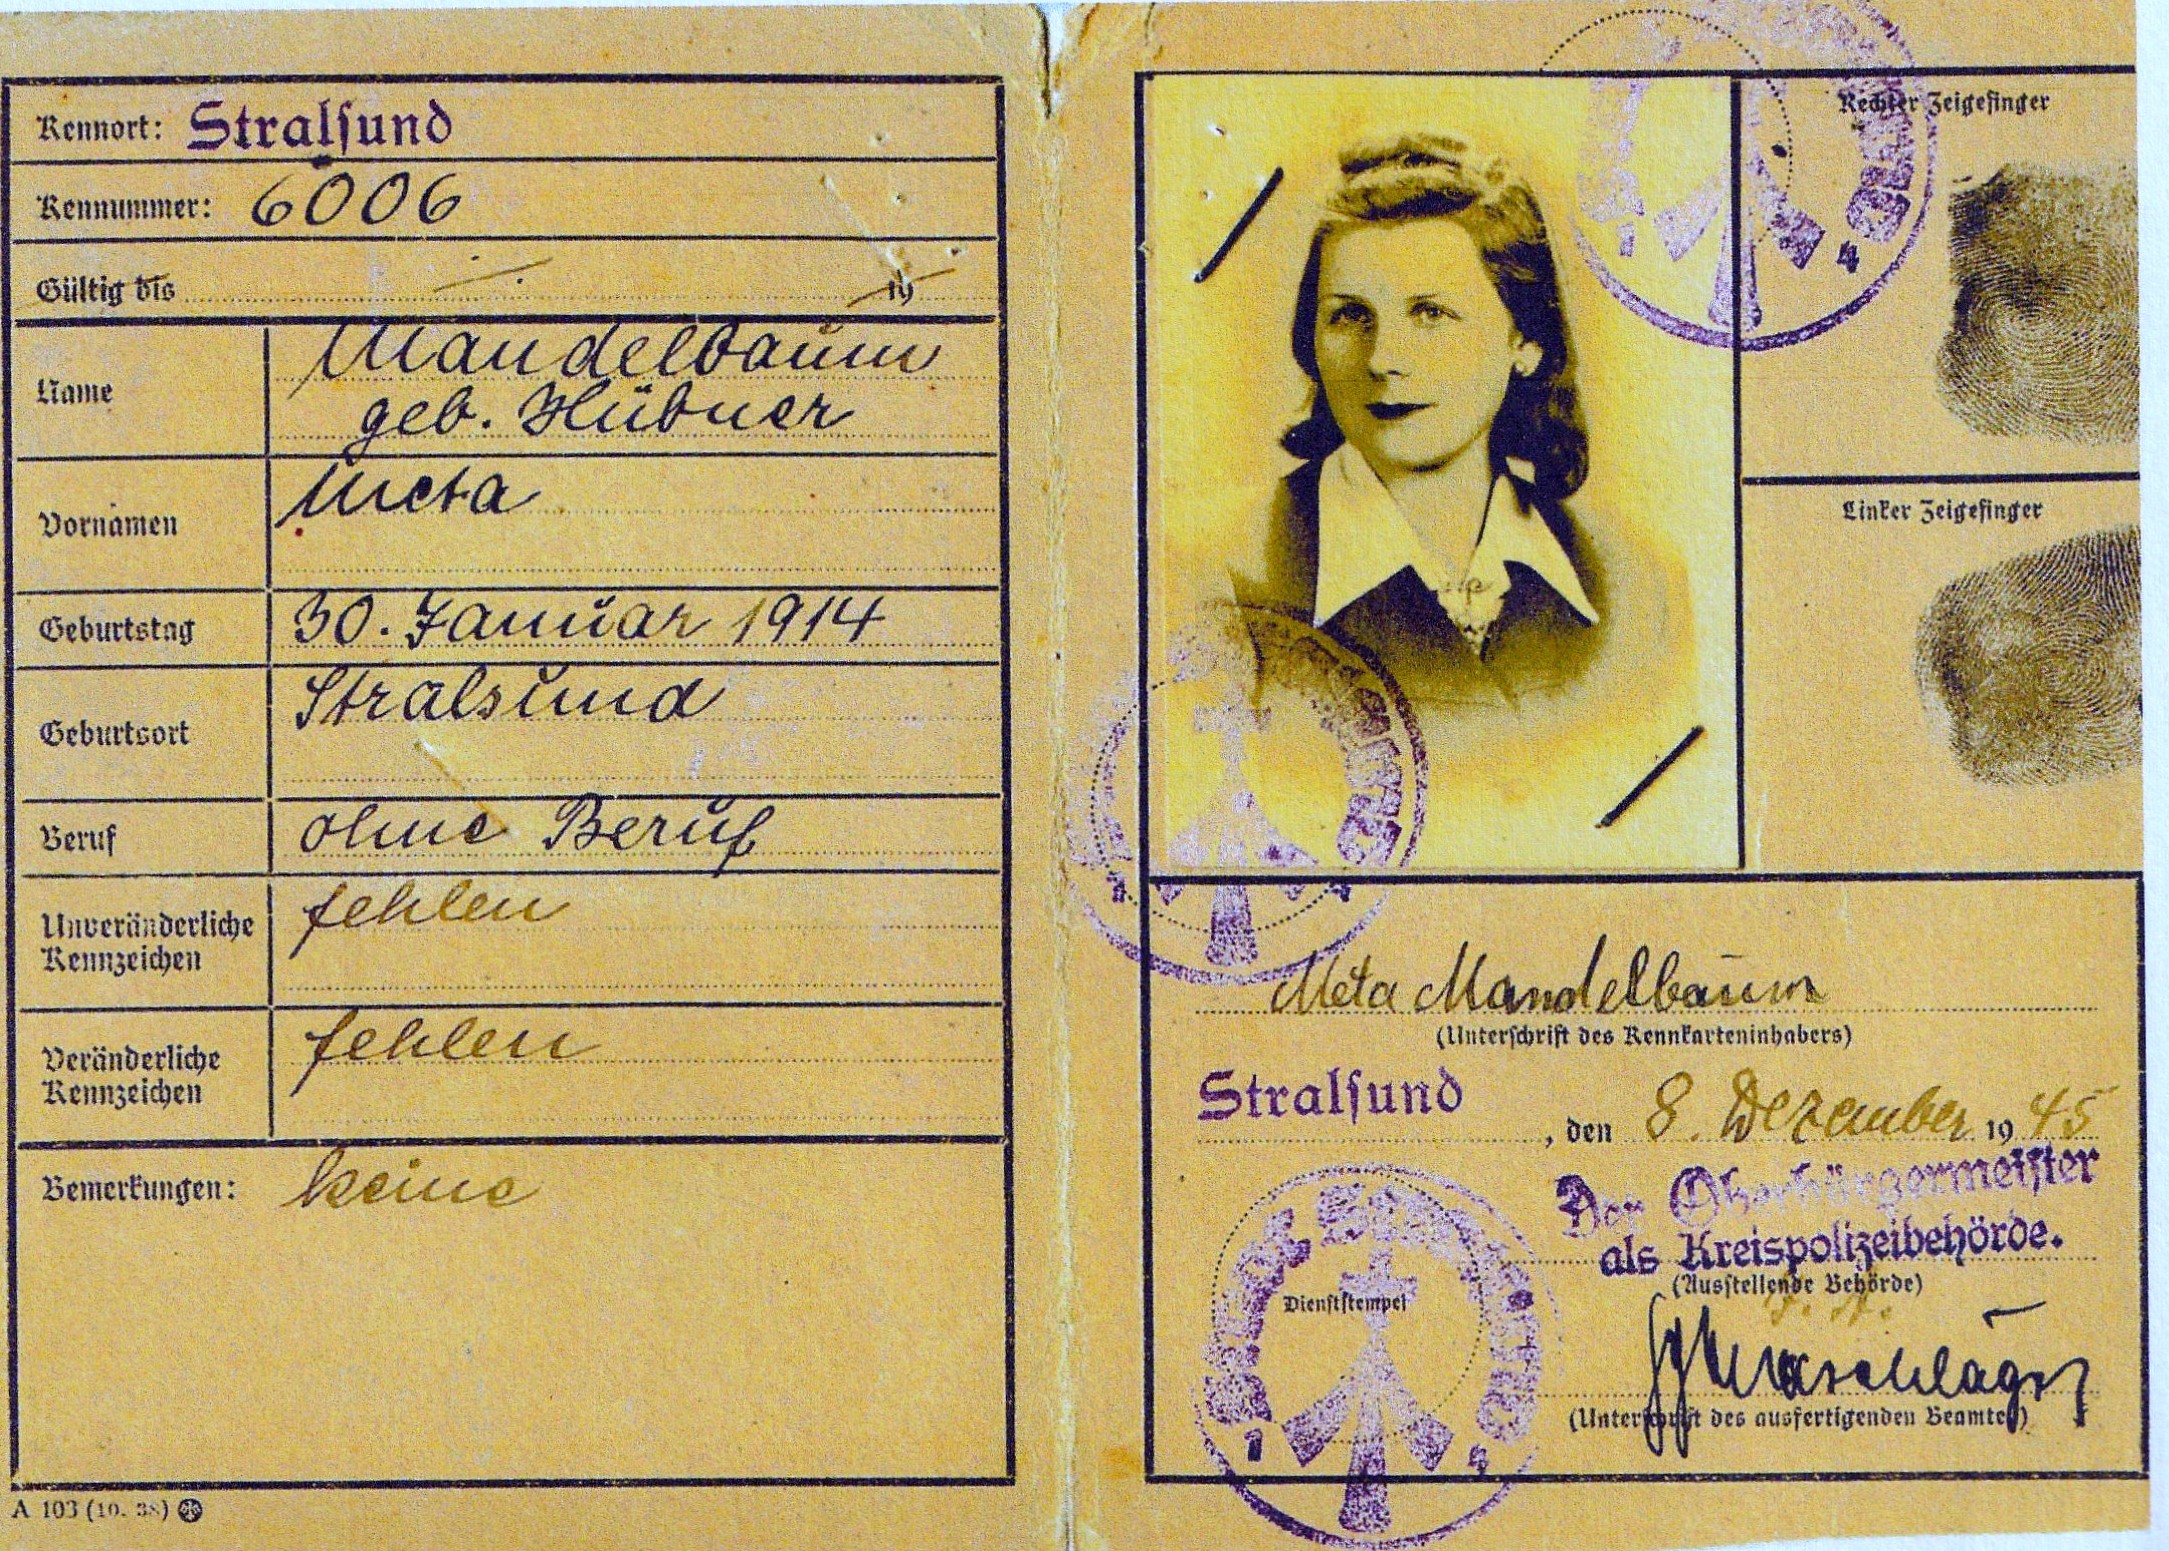 Kennort: Stralsund
Kennummer: 6006
Gültig bis 19
Name
Mandelbaum
geb. Hübner
Vornamen
Meta
Geburtstag
30. Januar 1914
Geburtsort
Stralsund
Beruf
ohne Beruf
Unveränderliche
Kennzeichen
fehlen
Veränderliche
Kennzeichen
fehlen
Bemerkungen: keine
A 103 (10. 38)
Rechter Zeigefinger
Linker Zeigefinger
Meta Mandelbaum
(Unterschrift des Kennkarteninhabers)
Stralsund, den 8. Dezember 1945
Der Oberbürgermeister
als Kreispolizeibehörde.
(Ausstellende Behörde)
Dienststempel
(Unterschrift des ausfertigenden Beamten)